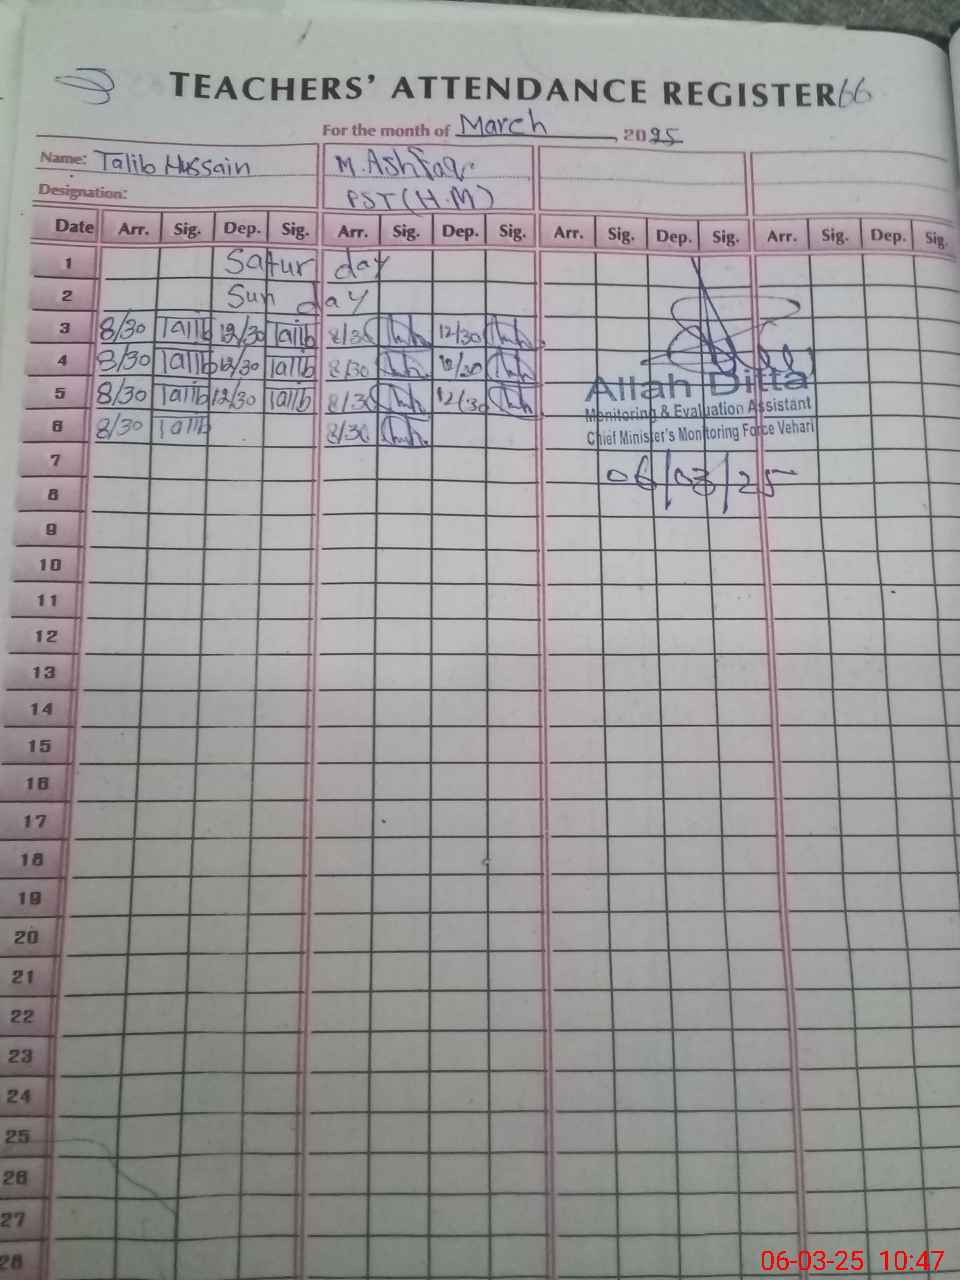 TEACHERS' ATTENDANCE REGISTER 66
For the month of March 2025
Name: Talib Hussain M. Ashfaq
Designation: PST (H.M)
Date Arr. Sig. Dep. Sig. Arr. Sig. Dep. Sig. Arr. Sig. Dep. Sig. Arr. Sig. Dep. Sig.
1 Satur day
2 Sun day
3 8/30 Talib 12/30 Talib 8/30 12/30
4 8/30 Talib 12/30 Talib 8/30 12/30
5 8/30 Talib 12/30 Talib 8/30 12/30
6 8/30 Talib 8/30
Allah Ditta
Monitoring & Evaluation Assistant
Chief Minister's Monitoring Force Vehari
06/03/25
7
8
9
10
11
12
13
14
15
16
17
18
19
20
21
22
23
24
25
26
27
28
06-03-25 10:47